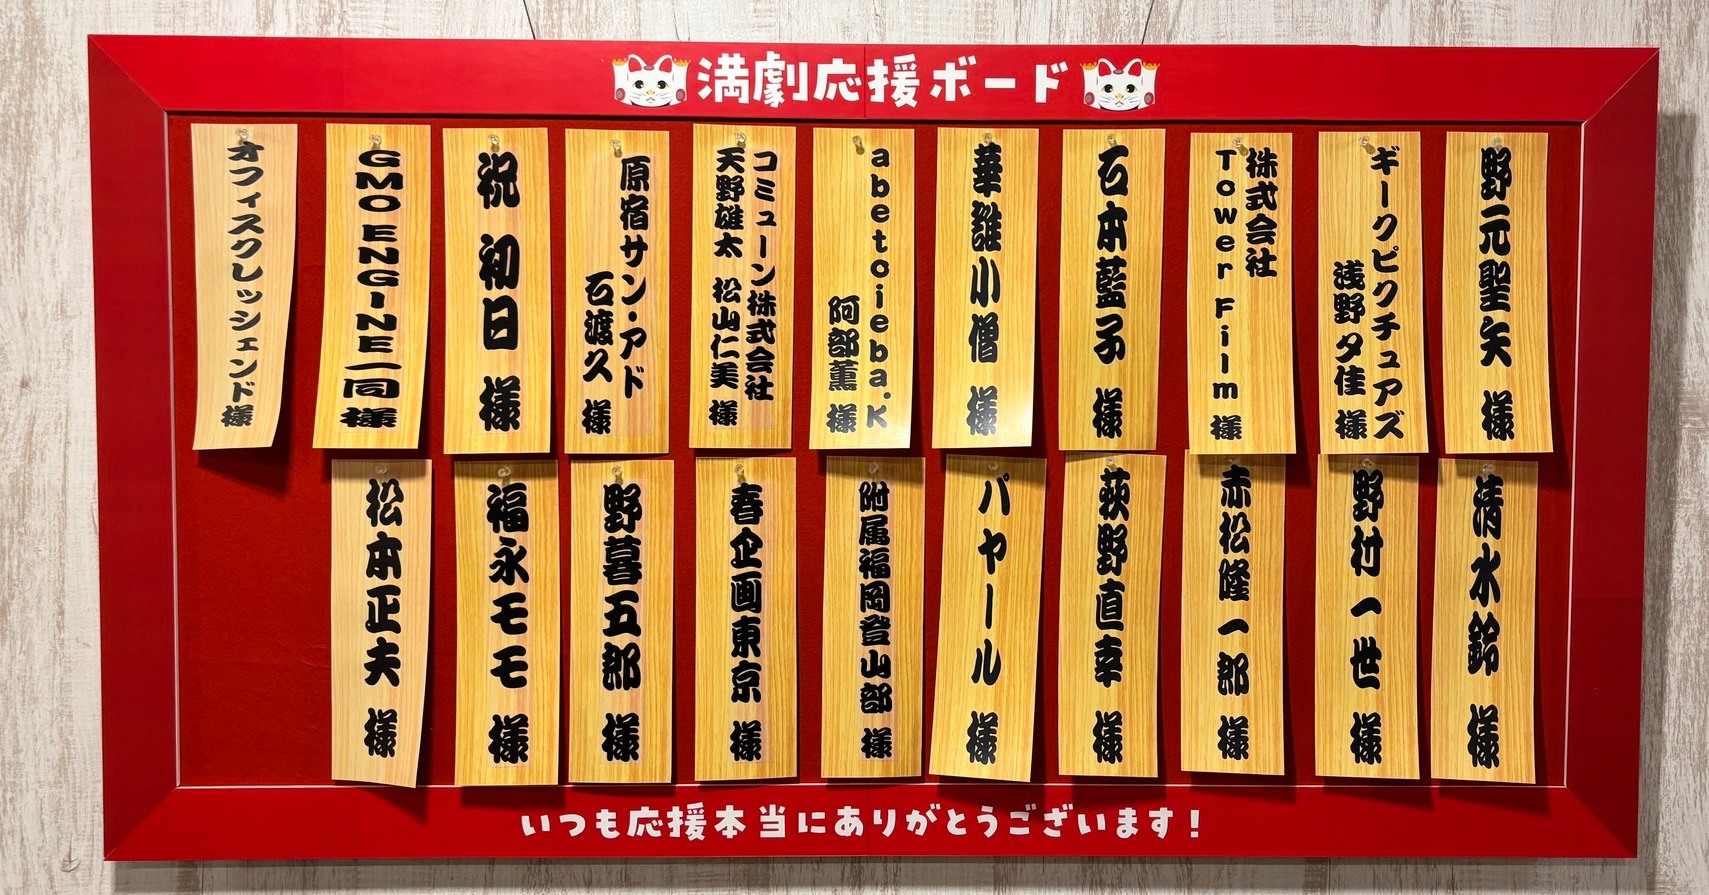 満劇応援ボード
野元聖矢 様
ギークピクチュアズ
浅野夕佳 様
株式会社
Tower Film 様
石本藍子 様
華雑小僧 様
abetoieba.K
阿部薫 様
コミューン株式会社
天野雄太 松山仁美 様
原宿サン・アド
石渡久 様
祝 初日 様
GMO ENGINE一同 様
オフィスクレッシェンド様
清水鈴 様
野村一世 様
赤松隆一郎 様
荻野直幸 様
パヤール 様
附属福岡登山部 様
春企画東京 様
野暮五郎 様
福永モモ 様
松本正夫 様
いつも応援本当にありがとうございます！